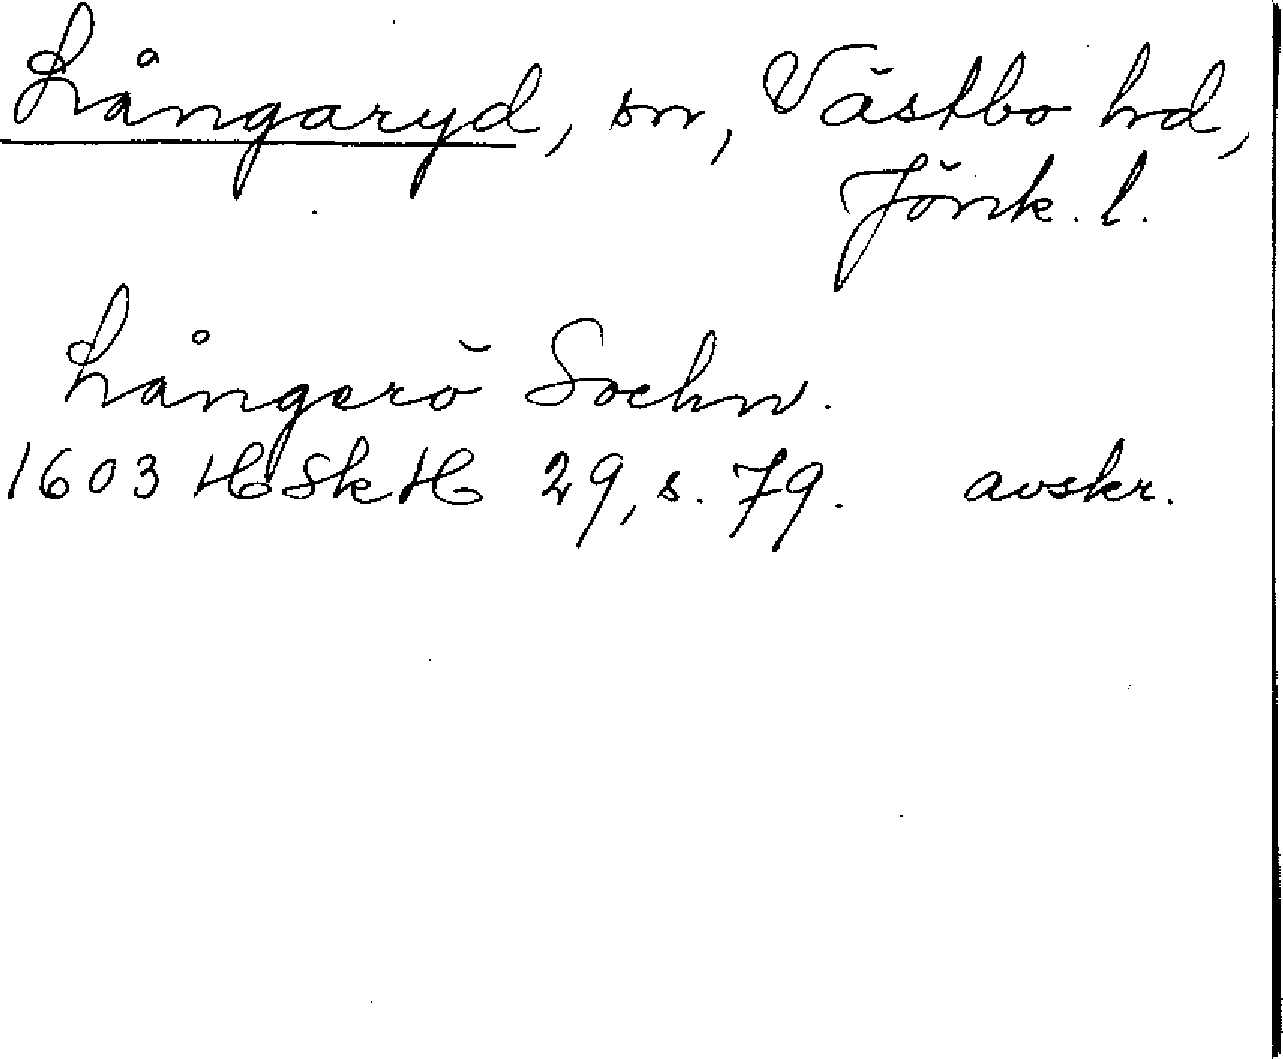 Långaryd, sn, Västbo hd,
Jönk. l.
Långerö Sochn.
1603 HSkH 29, s. 79. avskr.